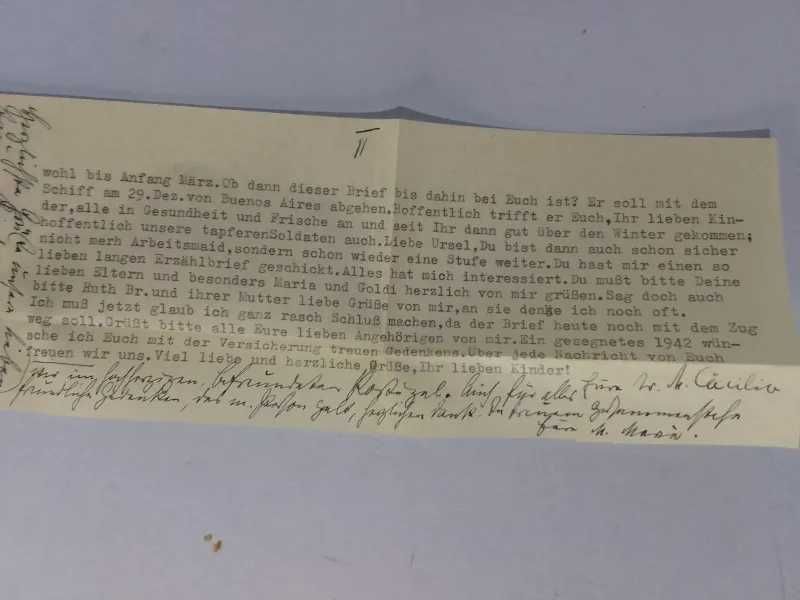 II
wohl bis Anfang März.Ob dann dieser Brief bis dahin bei Euch ist? Er soll mit dem
Schiff am 29.Dez.von Buenos Aires abgehen.Hoffentlich trifft er Euch,Ihr lieben Kin-
der,alle in Gesundheit und Frische an und seit Ihr dann gut über den Winter gekommen;
hoffentlich unsere tapferenSoldaten auch.Liebe Ursel,Du bist dann auch schon sicher
nicht merh Arbeitsmaid,sondern schon wieder eine Stufe weiter.Du hast mir einen so
lieben langen Erzählbrief geschickt.Alles hat mich interessiert.Du mußt bitte Deine
lieben Eltern und besonders Maria und Goldi herzlich von mir grüßen.Sag doch auch
bitte Ruth Br.und ihrer Mutter liebe Grüße von mir,an sie denke ich noch oft.
Ich muß jetzt glaub ich ganz rasch Schluß machen,da der Brief heute noch mit dem Zug
weg soll.Grüßt bitte alle Eure lieben Angehörigen von mir.Ein gezegnetes 1942 wün-
sche ich Euch mit der Versicherung treuen Gedenkens.Über jede Nachricht von Euch
freuen wir uns.Viel liebe und herzliche Grüße,Ihr lieben Kinder!
Eure tr. M. Cäcilia
freundliche Gedenken, das m. Person galt, herzlichen Dank. In treuem
Eure M. Maria.